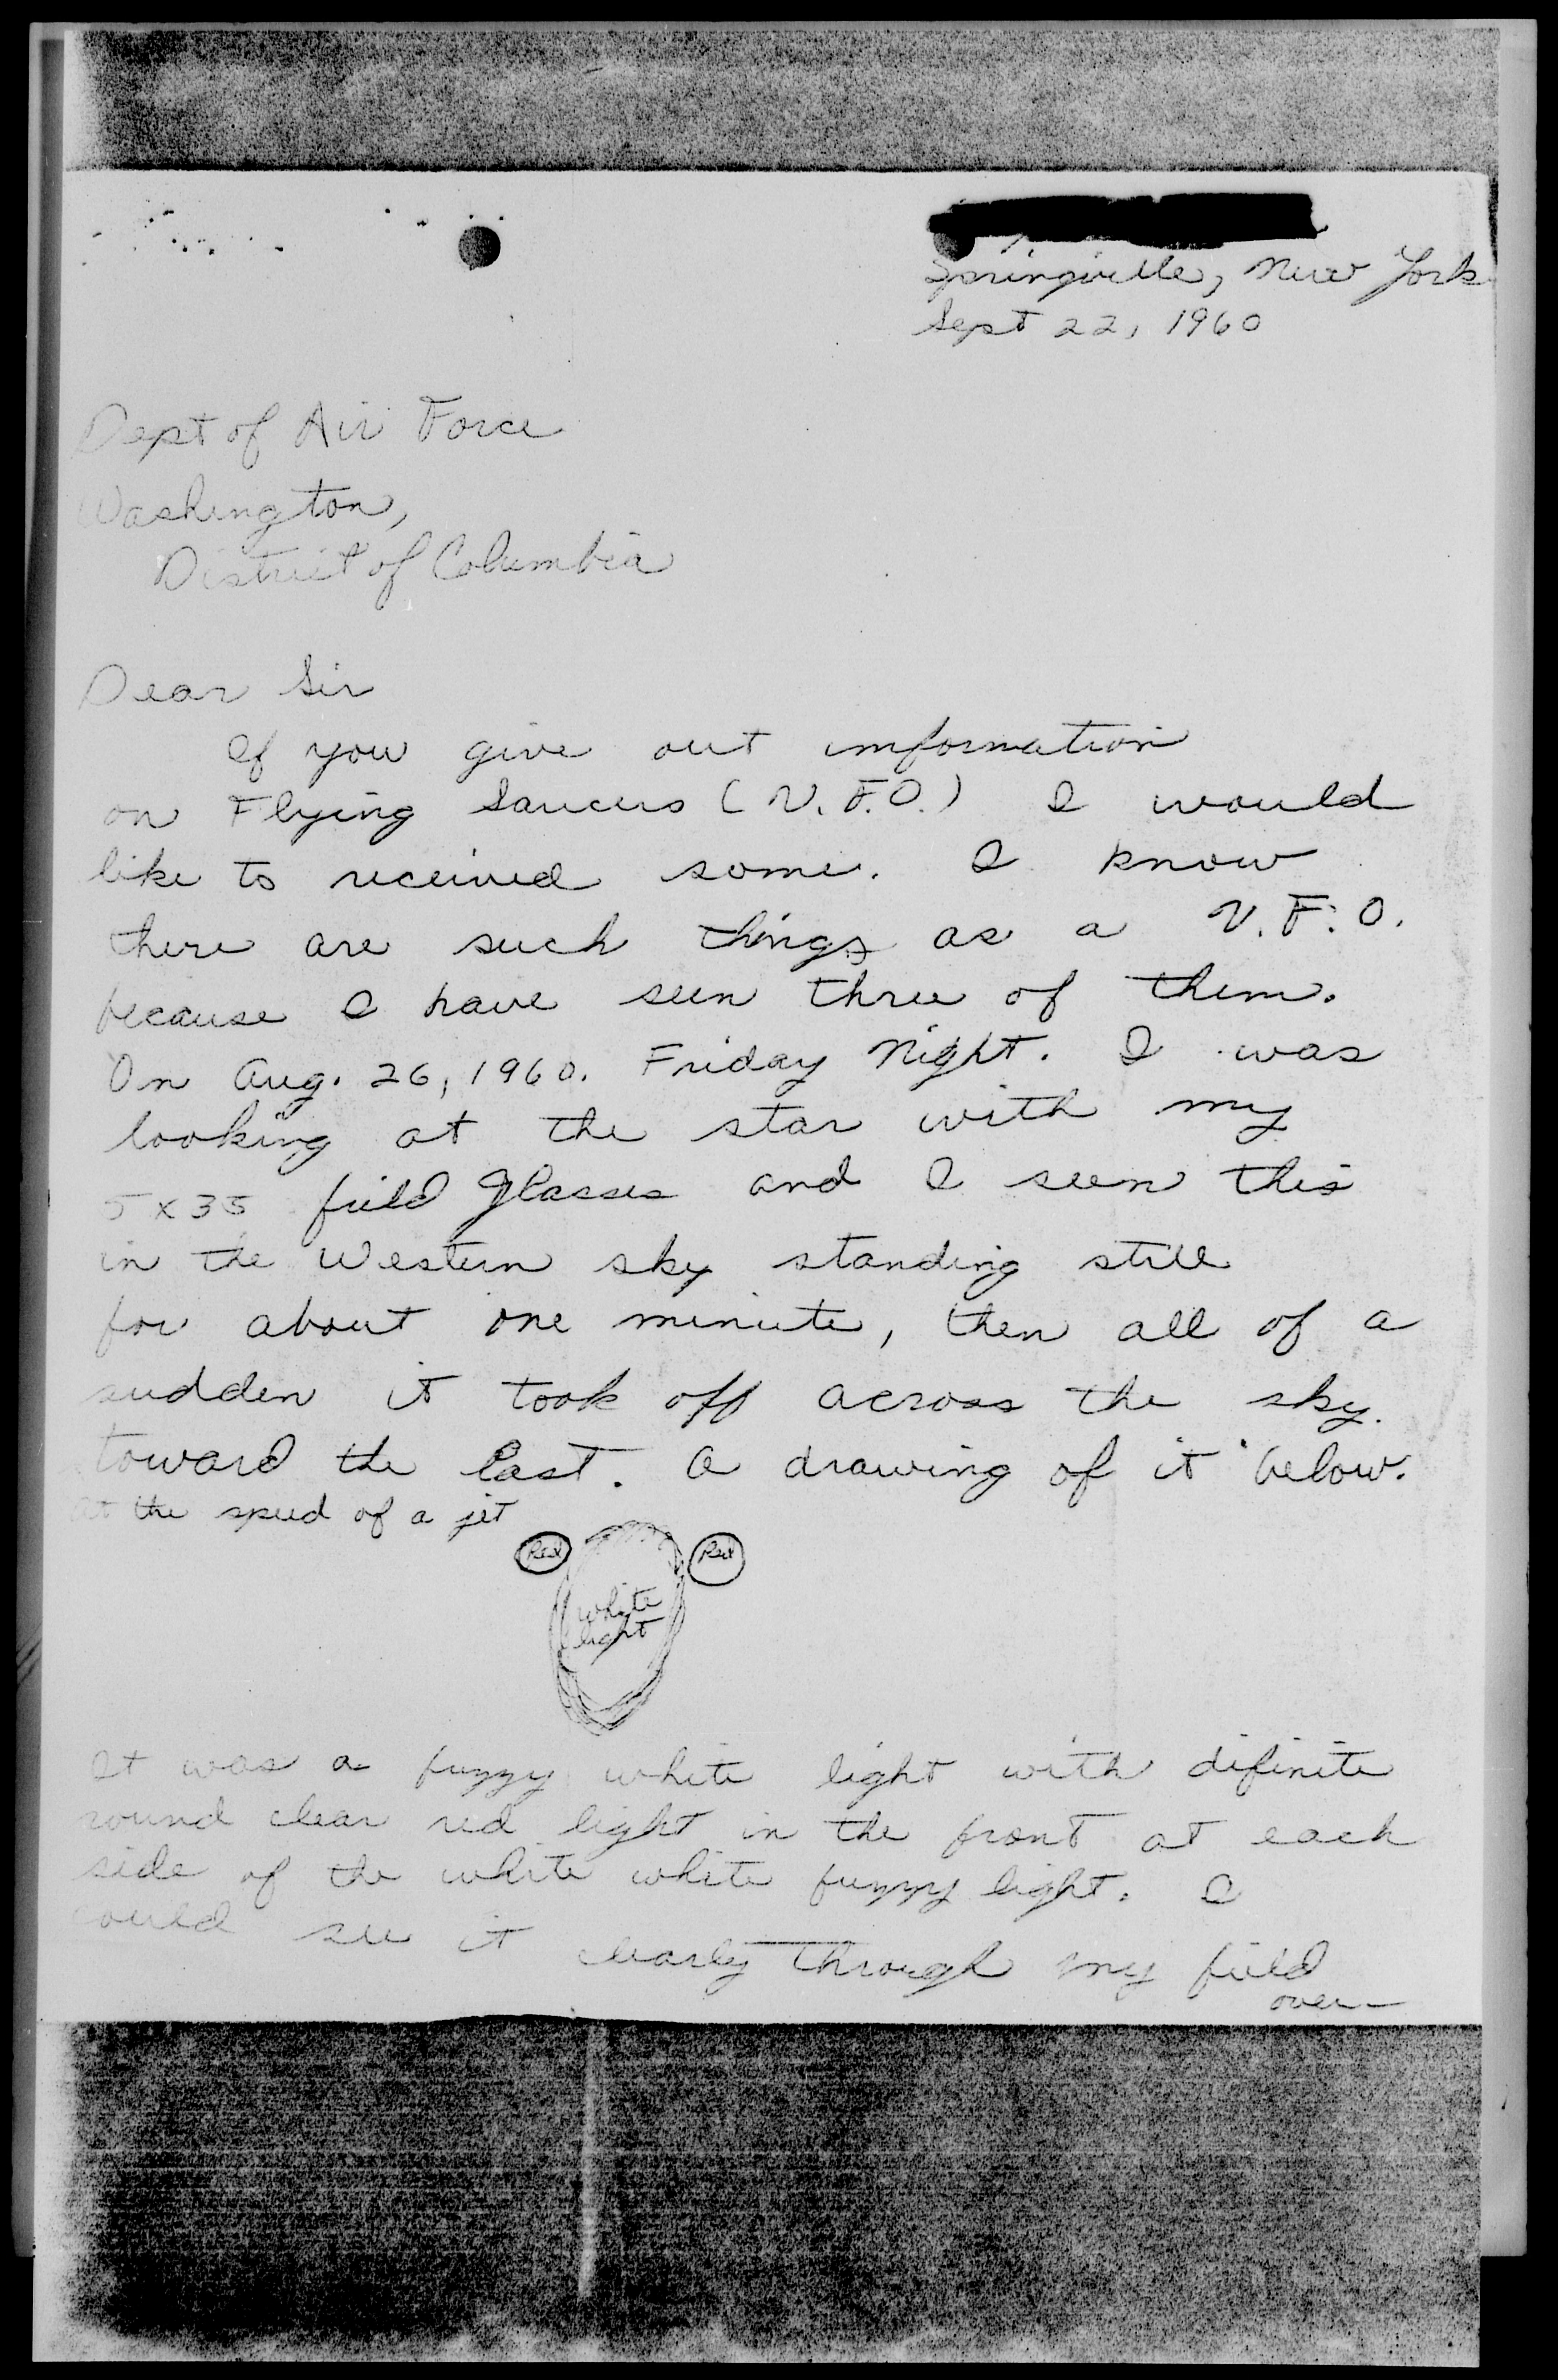 Springville, New York
Sept 22, 1960
Dept of Air Force
Washington,
District of Columbia
Dear Sir
If you give out imformation
on Flying Saucers (U.F.O.) I would
like to received some. I know
there are such things as a U.F.O.
because I have seen three of them.
On Aug. 26, 1960. Friday Night. I was
looking at the star with my
5 x 35 field glasses and I seen this
in the Western sky standing still
for about one minute, then all of a
sudden it took off across the sky.
toward the East. A drawing of it below.
at the speed of a jet
Red Red
white
light
It was a fuzzy white light with difinite
round clear red light in the front at each
side of the white white fuzzy light. I
could see it clearly through my field
over—